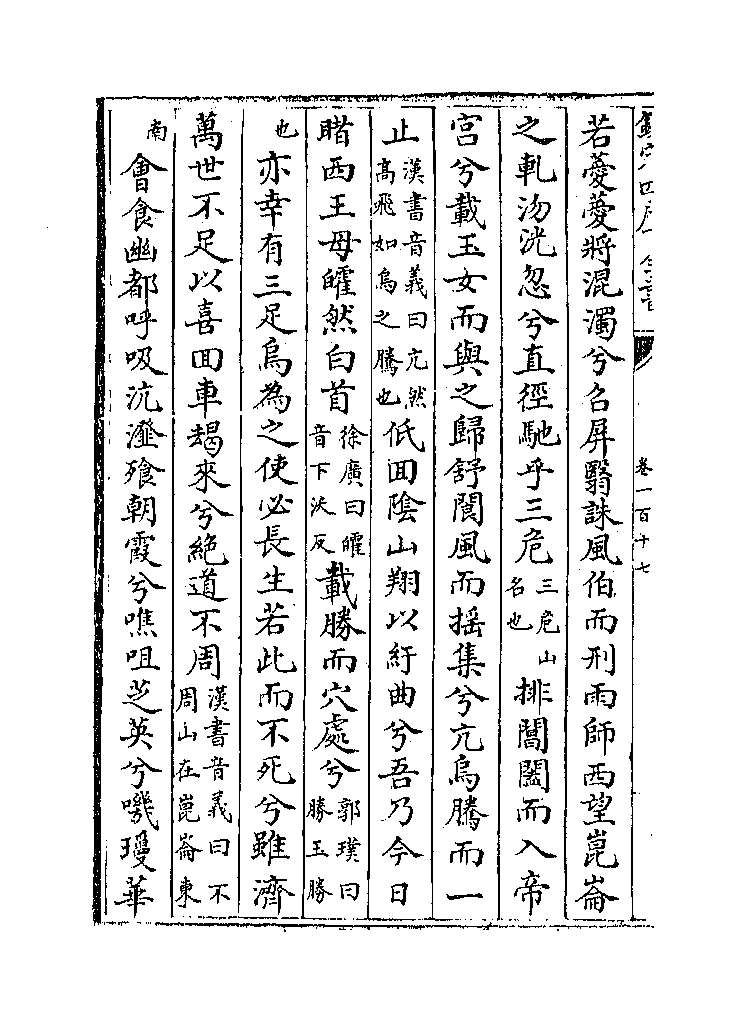 欽定四庫全書
卷一百十七
若薆薆將混濁兮召屏翳誅風伯而刑雨師西望崑崙
之軋沕洸忽兮直徑馳乎三危三危山名也排閶闔而入帝
宫兮載玉女而與之歸舒閬風而揺集兮亢烏騰而一
止漢書音義曰亢然高飛如烏之騰也低囬隂山翔以紆曲兮吾乃今日
睹西王母皬然白首徐廣曰皬音下沃反載勝而穴處兮郭璞曰勝玉勝
也亦幸有三足烏為之使必長生若此而不死兮雖濟
萬世不足以喜囬車朅來兮絶道不周漢書音義曰不周山在崑崙東
南㑹食幽都呼吸沆瀣飱朝霞兮噍咀芝英兮嘰瓊華